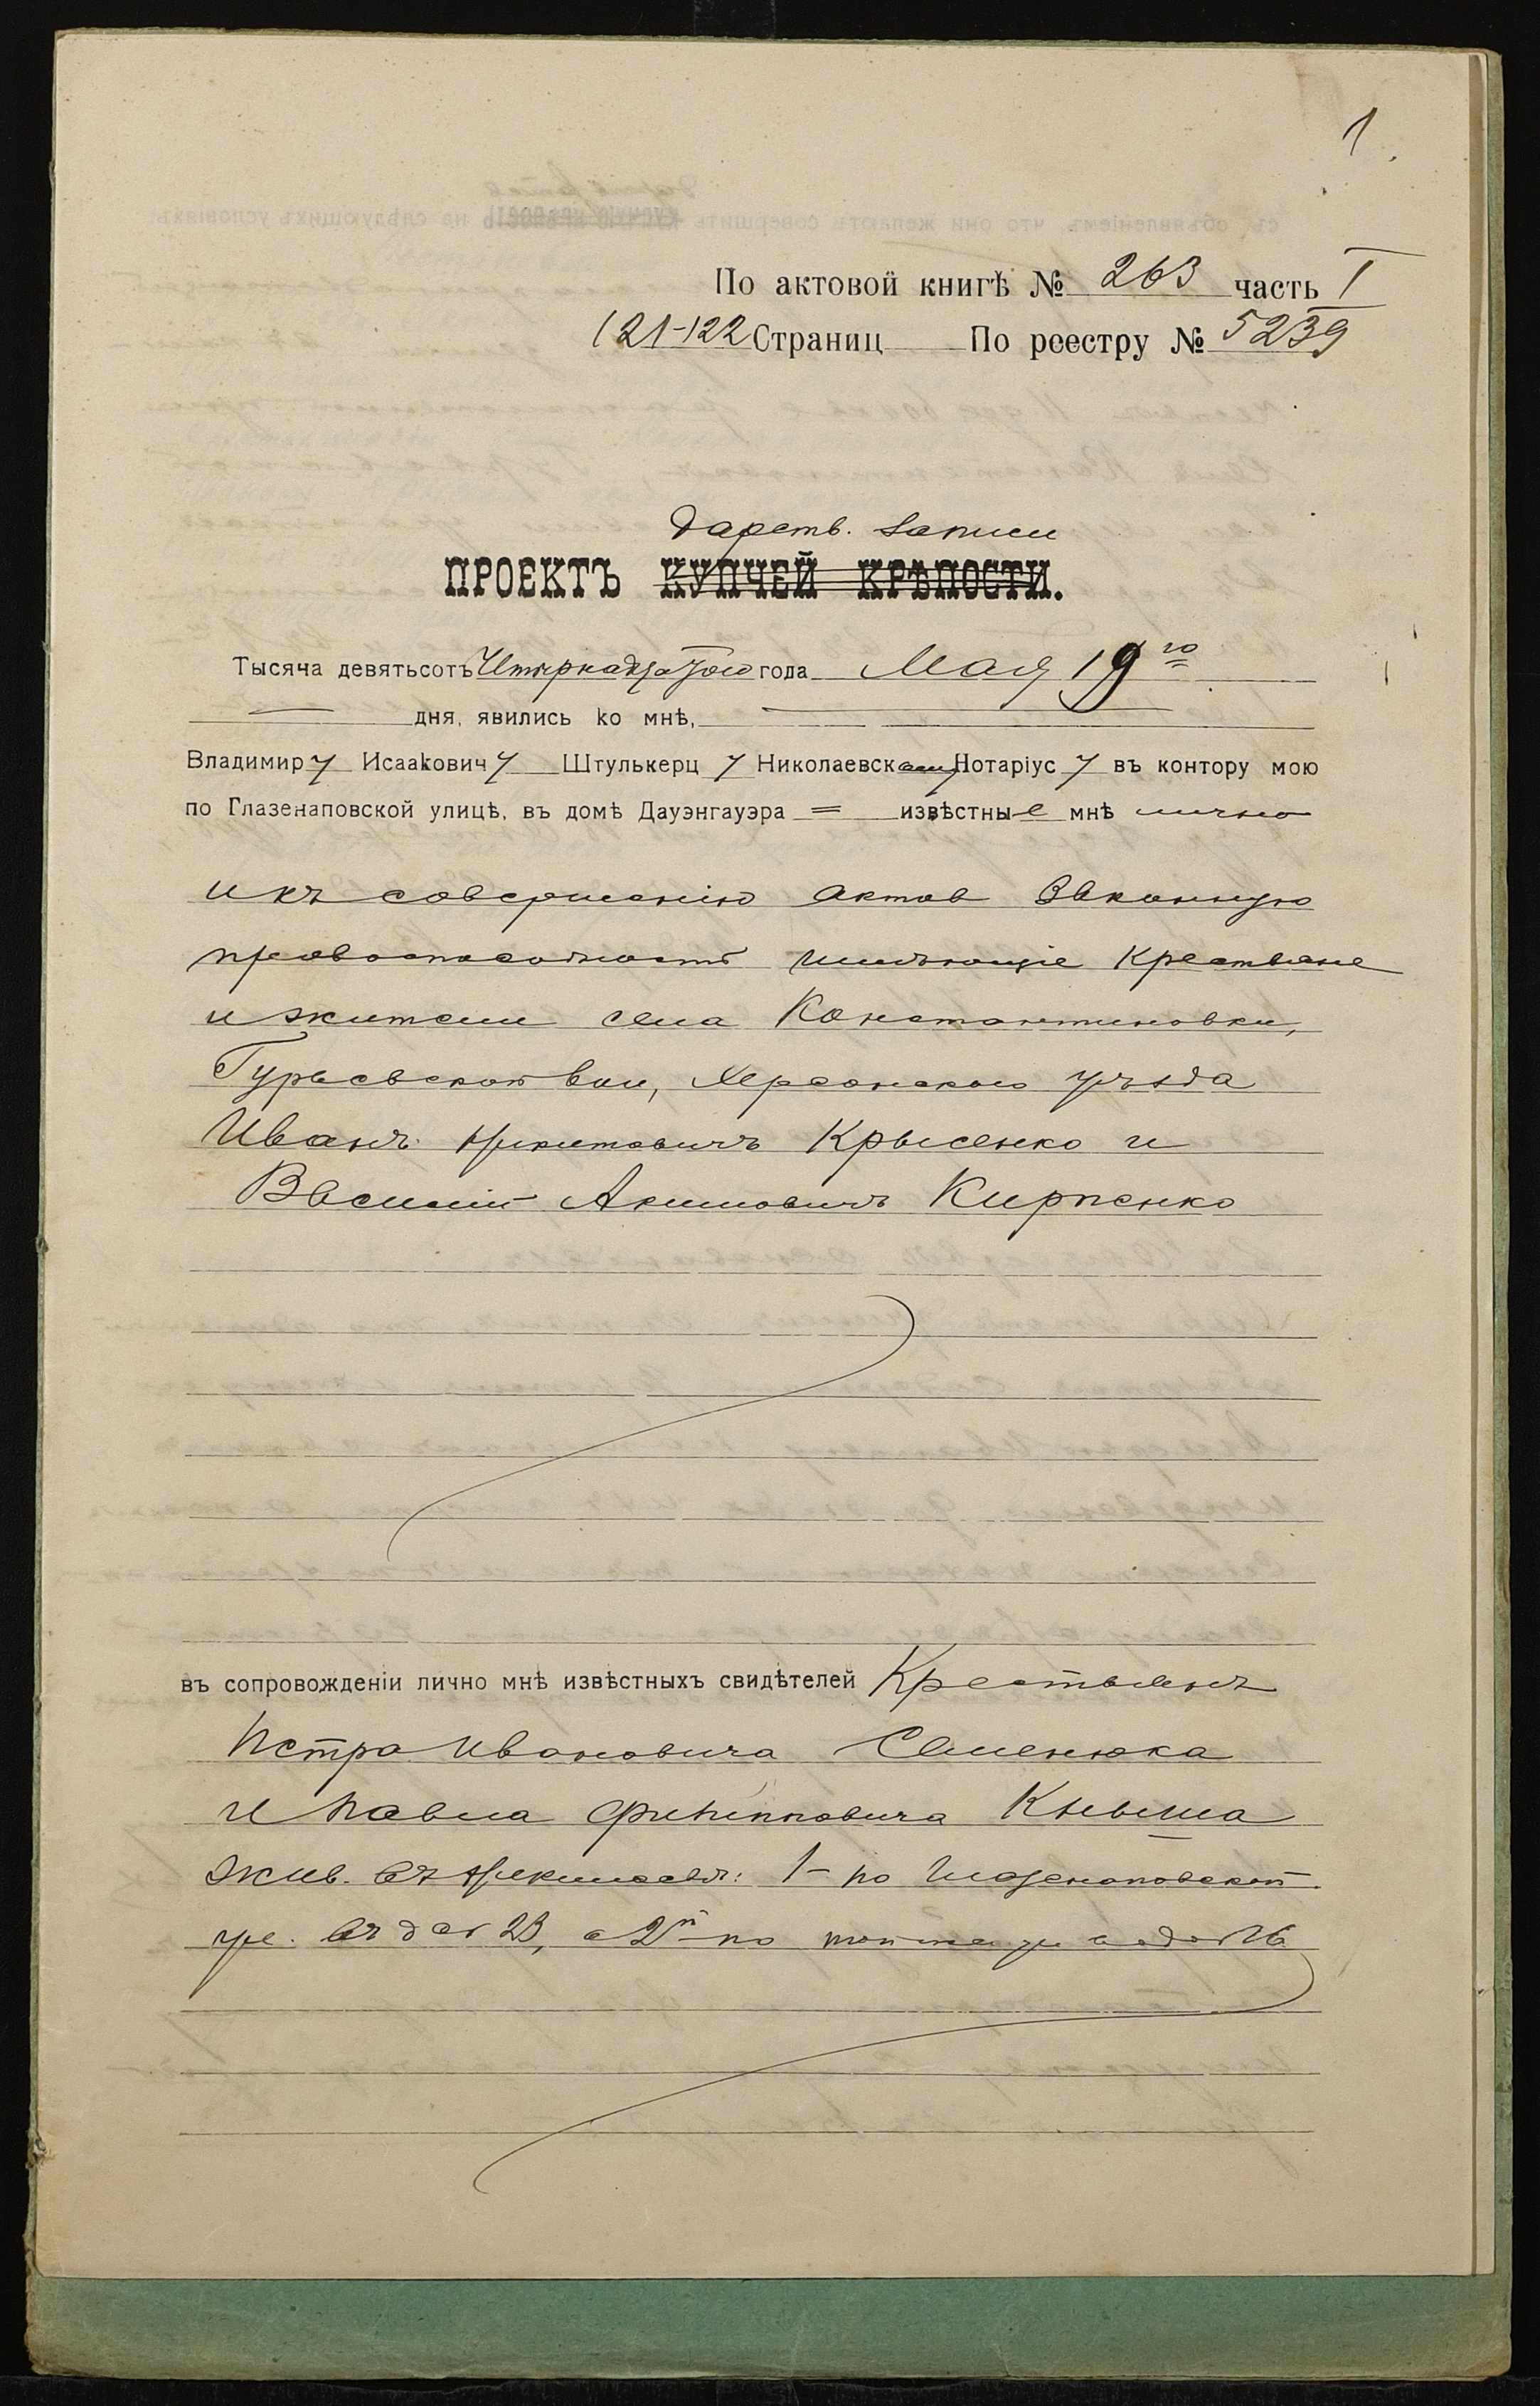 1.
По актовой книгѣ № 263 часть I
121-122 Страниц По реестру № 5239
дарств. записи
ПРОЕКТЪ КУПЧЕЙ КРѢПОСТИ.
Тысяча девятьсотъ Четырнадцатого года Мая 19го
дня, явились ко мнѣ,
Владимиру Исааковичу Штулькерцу Николаевскому Нотаріусу въ контору мою
по Глазенаповской улицѣ, въ домѣ Дауэнгауэра = извѣстные мнѣ лично
и къ совершенію актов законную
правоспособность имѣющіе Крестьяне
и жители села Константиновки,
Гурьевской вол, Херсонскаго уѣзда
Иванъ Никитовичъ Крысенко и
Василій Акимовичъ Кирпенко
въ сопровожденіи лично мнѣ извѣстныхъ свидѣтелей Крестьянъ
Петра Ивановича Семенюка
и Павла Филипповича Кныша
жив. въ Николаевѣ: 1- по Глазенаповской
ул. въ д № 23, а 2й по той же ул в д № 16